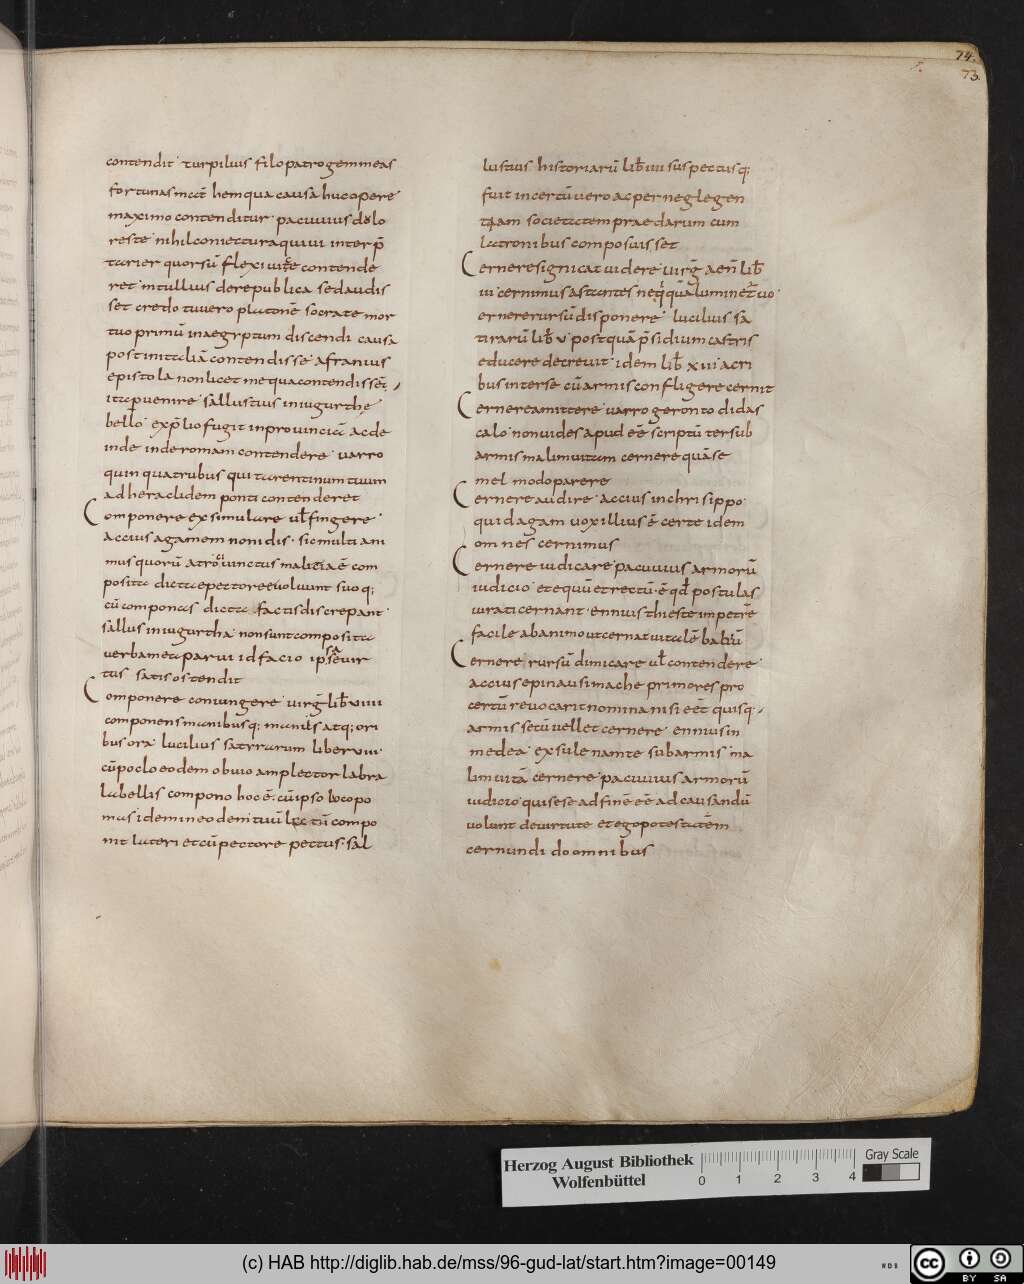 74.
73
contendit· turpilius filopatro gemmeas
fortunas mcct hem qua causa huc opere
maximo contenditur· pacuuius dolo
reste· nihil coniectura quiui interp̄
tarier quorsū flexiuicæ contende
ret· m tullius de republica sed audis
set credo tu uero platonē socrate mor
tuo primū in aegyptum discendi causa
post in italiā contendisse· afranius
epistola non licet me qua contendisset
ita peruenire· sallustius in iugurthę
bello· exp̄lio fugit in prouinciā ac de
inde inde romam contendere· uarro
quinquatrubus qui tarentinum tuum
ad heraclidem ponti contenderet
Componere ex simulare ul̄ fingere·
accius agamemnonidis· sic multi ani
mus quorū atroci uinctus malitia ē com
posita dicta e pectore euoluunt suo q;
cū componas dicta factis discrepant·
sallus in iugurtha· non sunt composita
uerba mea parui id facio ipsa se uir
tus satis ostendit
Componere coniungere uirḡ lib̄ uiiii
componens manibusq; manus atq; ori
bus ora· lucilius satyrarum liber uiii·
cū poclo eodem obuio amplector labra
labellis compono hoc ē· cū ipso loco po
mus idem in eodem iuū loc tū compo
nit lateri et cū pectore pectus· sal
lustius historiarū lib̄ iiii suspectusq;
fuit incertū uero ac per neglegen
tiam societatem praedarum cum
latronibus composuisset
Cernere significat uidere· uirḡ aen̄ lib̄
iii cernimus astantes nequiquā lumine toruo·
cernere rursū disponere· lucilius sa
tirarū lib̄ v postquā p̄sidium castris
educere decreuit· idem lib̄ xui acri
bus inter se cū armis confligere cernit
Cernere amittere uarro gerontodidas
calo· non uides apud eē scriptū ter sub
armis malim uitam cernere quā se
mel modo parere
Cernere audire· accius in chrisippo·
quid agam uox illius ē certe idem
omnes cernimus
Cernere iudicare· pacuuius armorū
iudicio· et equū et rectū ē qd̄ postulas
iurati cernant· ennius thieste impetrē
facile ab animo ut cernat uitalē babiū
Cernere rursū dimicare ul̄ contendere·
accius epinausimache primores pro
certū reuocarit nomina nisi eēt quisq·
armis secū uellet cernere· ennius in
medea· exsule nam te sub armis ma
lim uitā cernere· pacuuius armorū
iudicio· qui sese ad finē eē ad causandū
uolunt de uirtute et ego potestatem
cernundi do omnibus
Herzog August Bibliothek
Wolfenbüttel
0 1 2 3 4
Gray Scale
(c) HAB http://diglib.hab.de/mss/96-gud-lat/start.htm?image=00149
WDB
cc BY SA